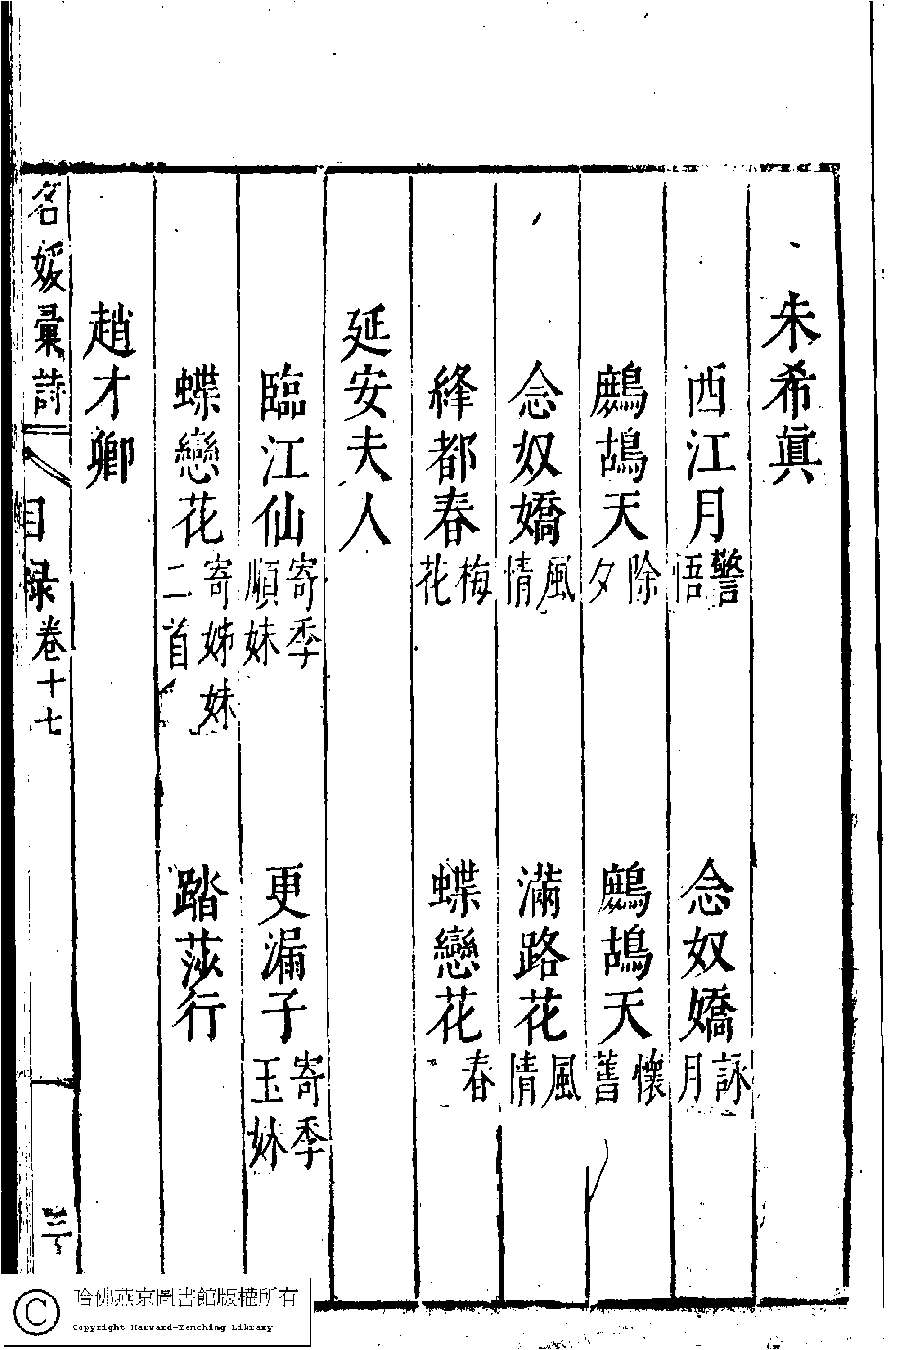 朱希眞
西江月警悟 念奴嬌詠月
鷓鴣天除夕 鷓鴣天懷舊
念奴嬌風情 滿路花風情
絳都春梅花 蝶戀花春
延安夫人
臨江仙寄季順妹 更漏子寄季玉妹
蝶戀花寄姊妹二首 踏莎行
趙才卿
名媛彙詩 目录卷十七 三
哈佛燕京圖書館版權所有
Copyright Harvard-Yenching Library